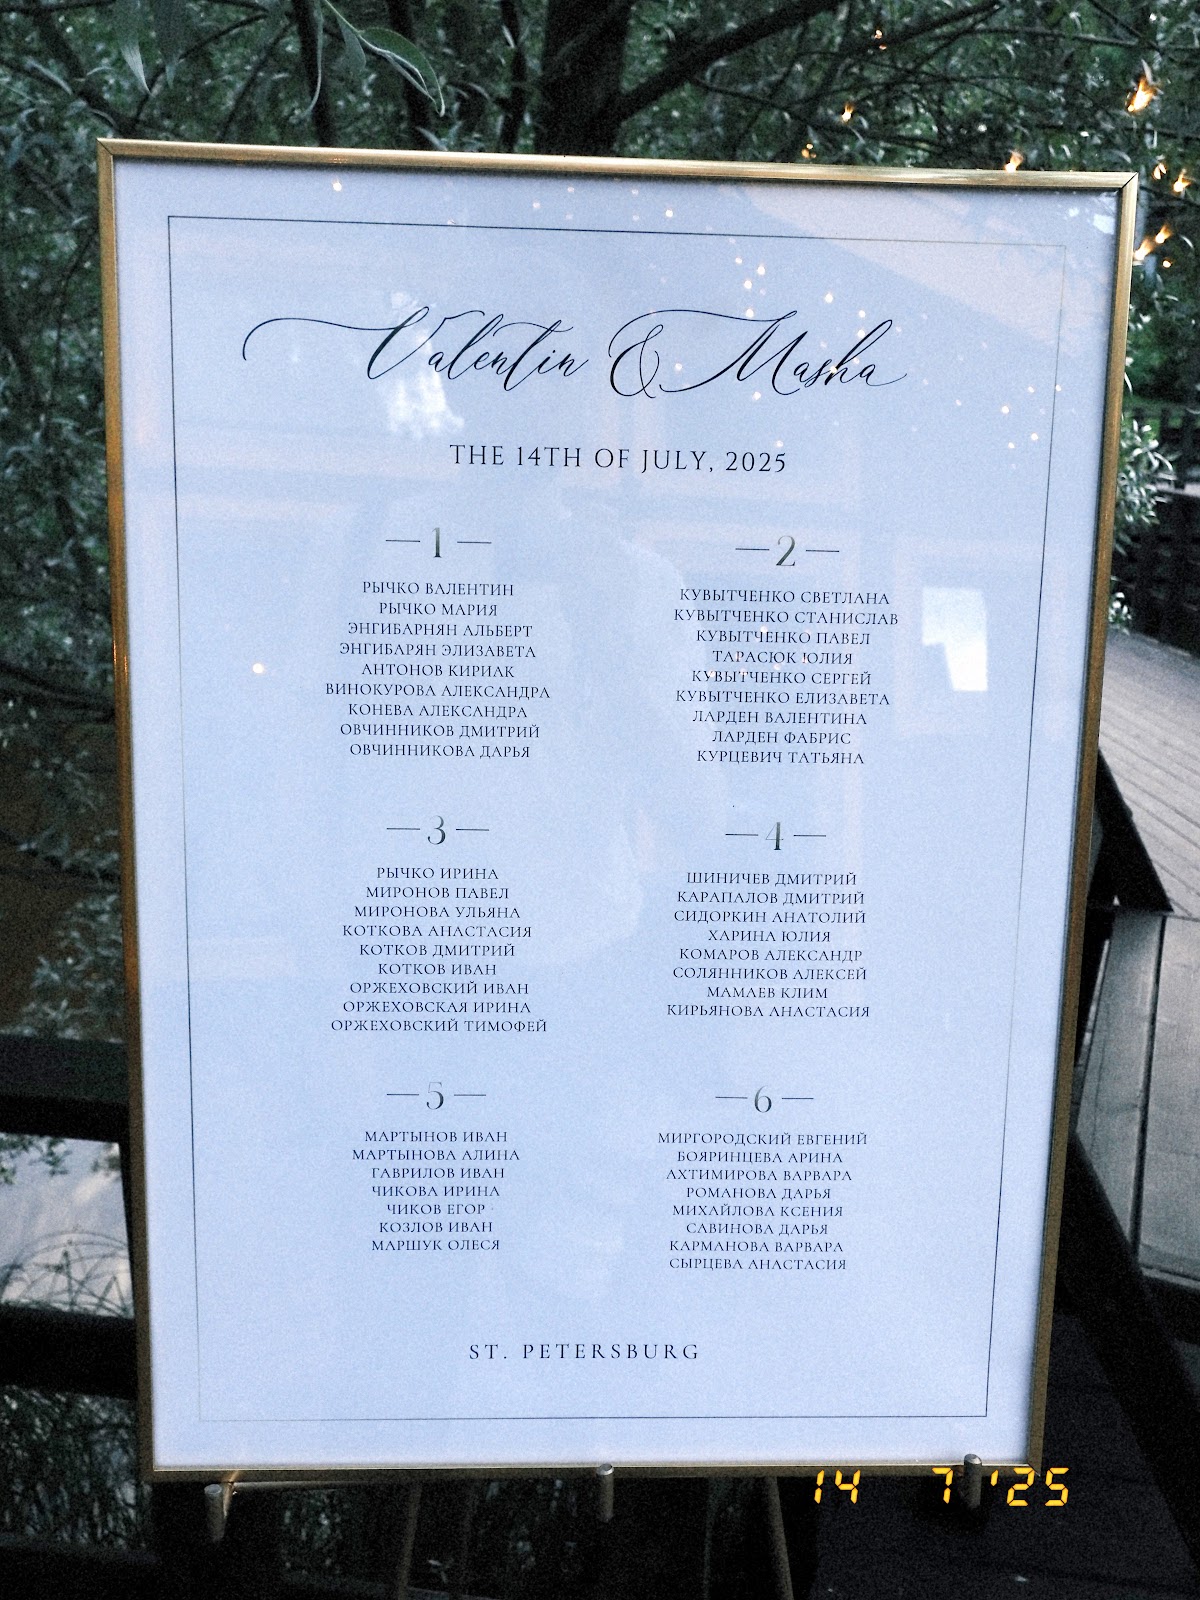 Valentin & Masha
THE 14TH OF JULY, 2025
1
РЫЧКО ВАЛЕНТИН
РЫЧКО МАРИЯ
ЭНГИБАРНЯН АЛЬБЕРТ
ЭНГИБАРЯН ЕЛИЗАВЕТА
АНТОНОВ КИРИАК
ВИНОКУРОВА АЛЕКСАНДРА
КОНЕВА АЛЕКСАНДРА
ОВЧИННИКОВ ДМИТРИЙ
ОВЧИННИКОВА ДАРЬЯ
2
КУВЫТЧЕНКО СВЕТЛАНА
КУВЫТЧЕНКО СТАНИСЛАВ
КУВЫТЧЕНКО ПАВЕЛ
ТАРАСЮК ЮЛИЯ
КУВЫТЧЕНКО СЕРГЕЙ
КУВЫТЧЕНКО ЕЛИЗАВЕТА
ЛАРДЕН ВАЛЕНТИНА
ЛАРДЕН ФАБРИС
КУРЦЕВИЧ ТАТЬЯНА
3
РЫЧКО ИРИНА
МИРОНОВ ПАВЕЛ
МИРОНОВА УЛЬЯНА
КОТКОВА АНАСТАСИЯ
КОТКОВ ДМИТРИЙ
КОТКОВ ИВАН
ОРЖЕХОВСКИЙ ИВАН
ОРЖЕХОВСКАЯ ИРИНА
ОРЖЕХОВСКИЙ ТИМОФЕЙ
4
ШИНИЧЕВ ДМИТРИЙ
КАРАПАЛОВ ДМИТРИЙ
СИДОРКИН АНАТОЛИЙ
ХАРИНА ЮЛИЯ
КОМАРОВ АЛЕКСАНДР
СОЛЯННИКОВ АЛЕКСЕЙ
МАМАЕВ КЛИМ
КИРЬЯНОВА АНАСТАСИЯ
5
МАРТЫНОВ ИВАН
МАРТЫНОВА АЛИНА
ГАВРИЛОВ ИВАН
ЧИКОВА ИРИНА
ЧИКОВ ЕГОР
КОЗЛОВ ИВАН
МАРШУК ОЛЕСЯ
6
МИРГОРОДСКИЙ ЕВГЕНИЙ
БОЯРИНЦЕВА АРИНА
АХТИМИРОВА ВАРВАРА
РОМАНОВА ДАРЬЯ
МИХАЙЛОВА КСЕНИЯ
САВИНОВА ДАРЬЯ
КАРМАНОВА ВАРВАРА
СЫРЦЕВА АНАСТАСИЯ
ST. PETERSBURG
14 7 '25